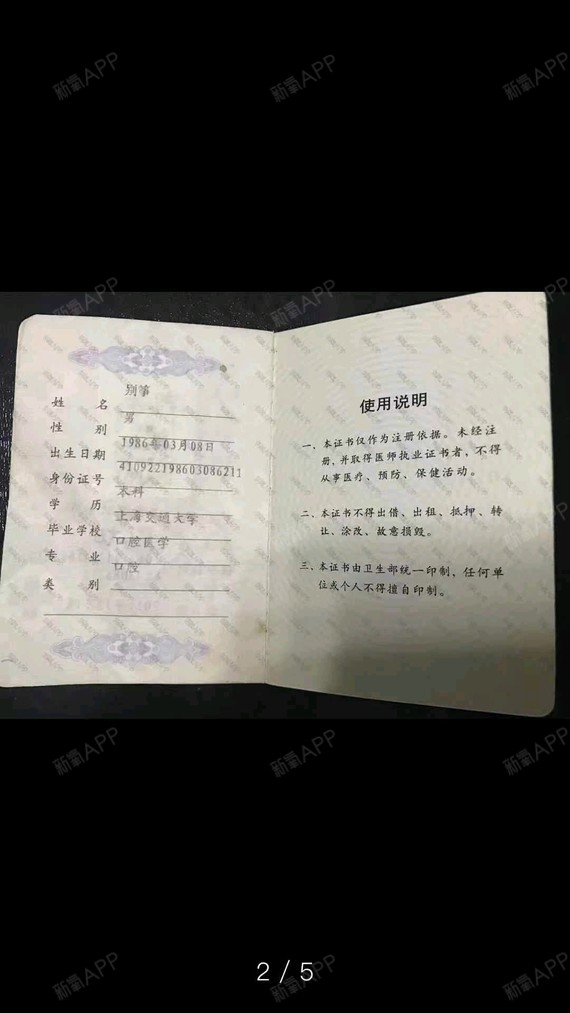 新氧APP 新氧APP 新氧APP
新氧APP 新氧APP 新氧APP
姓 名 别筝
性 别 男
出生日期 1986年03月08日
身份证号 410922198603086211
学 历 本科
毕业学校 上海交通大学
专 业 口腔医学
类 别 口腔
使用说明
一、本证书仅作为注册依据。未经注
册、并取得医师执业证书者，不得
从事医疗、预防、保健活动。
二、本证书不得出借、出租、抵押、转
让、涂改、故意损毁。
三、本证书由卫生部统一印制，任何单
位或个人不得擅自印制。
新氧APP 新氧APP 新氧APP
2 / 5
新氧APP 新氧APP 新氧APP